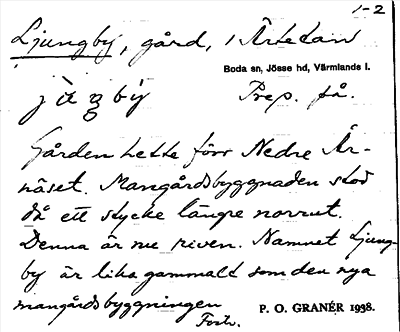 1-2
Ljungby, gård, i Ärtetan
Boda sn, Jösse hd, Värmlands l.
Prep. på.
Gården hette förr Nedre Är-
näset. Mangårdsbyggnaden stod
då ett stycke längre norrut.
Denna är nu riven. Namnet Ljung-
by är lika gammalt som den nya
mangårdsbyggningen
Forts.
P. O. GRANÉR 1938.